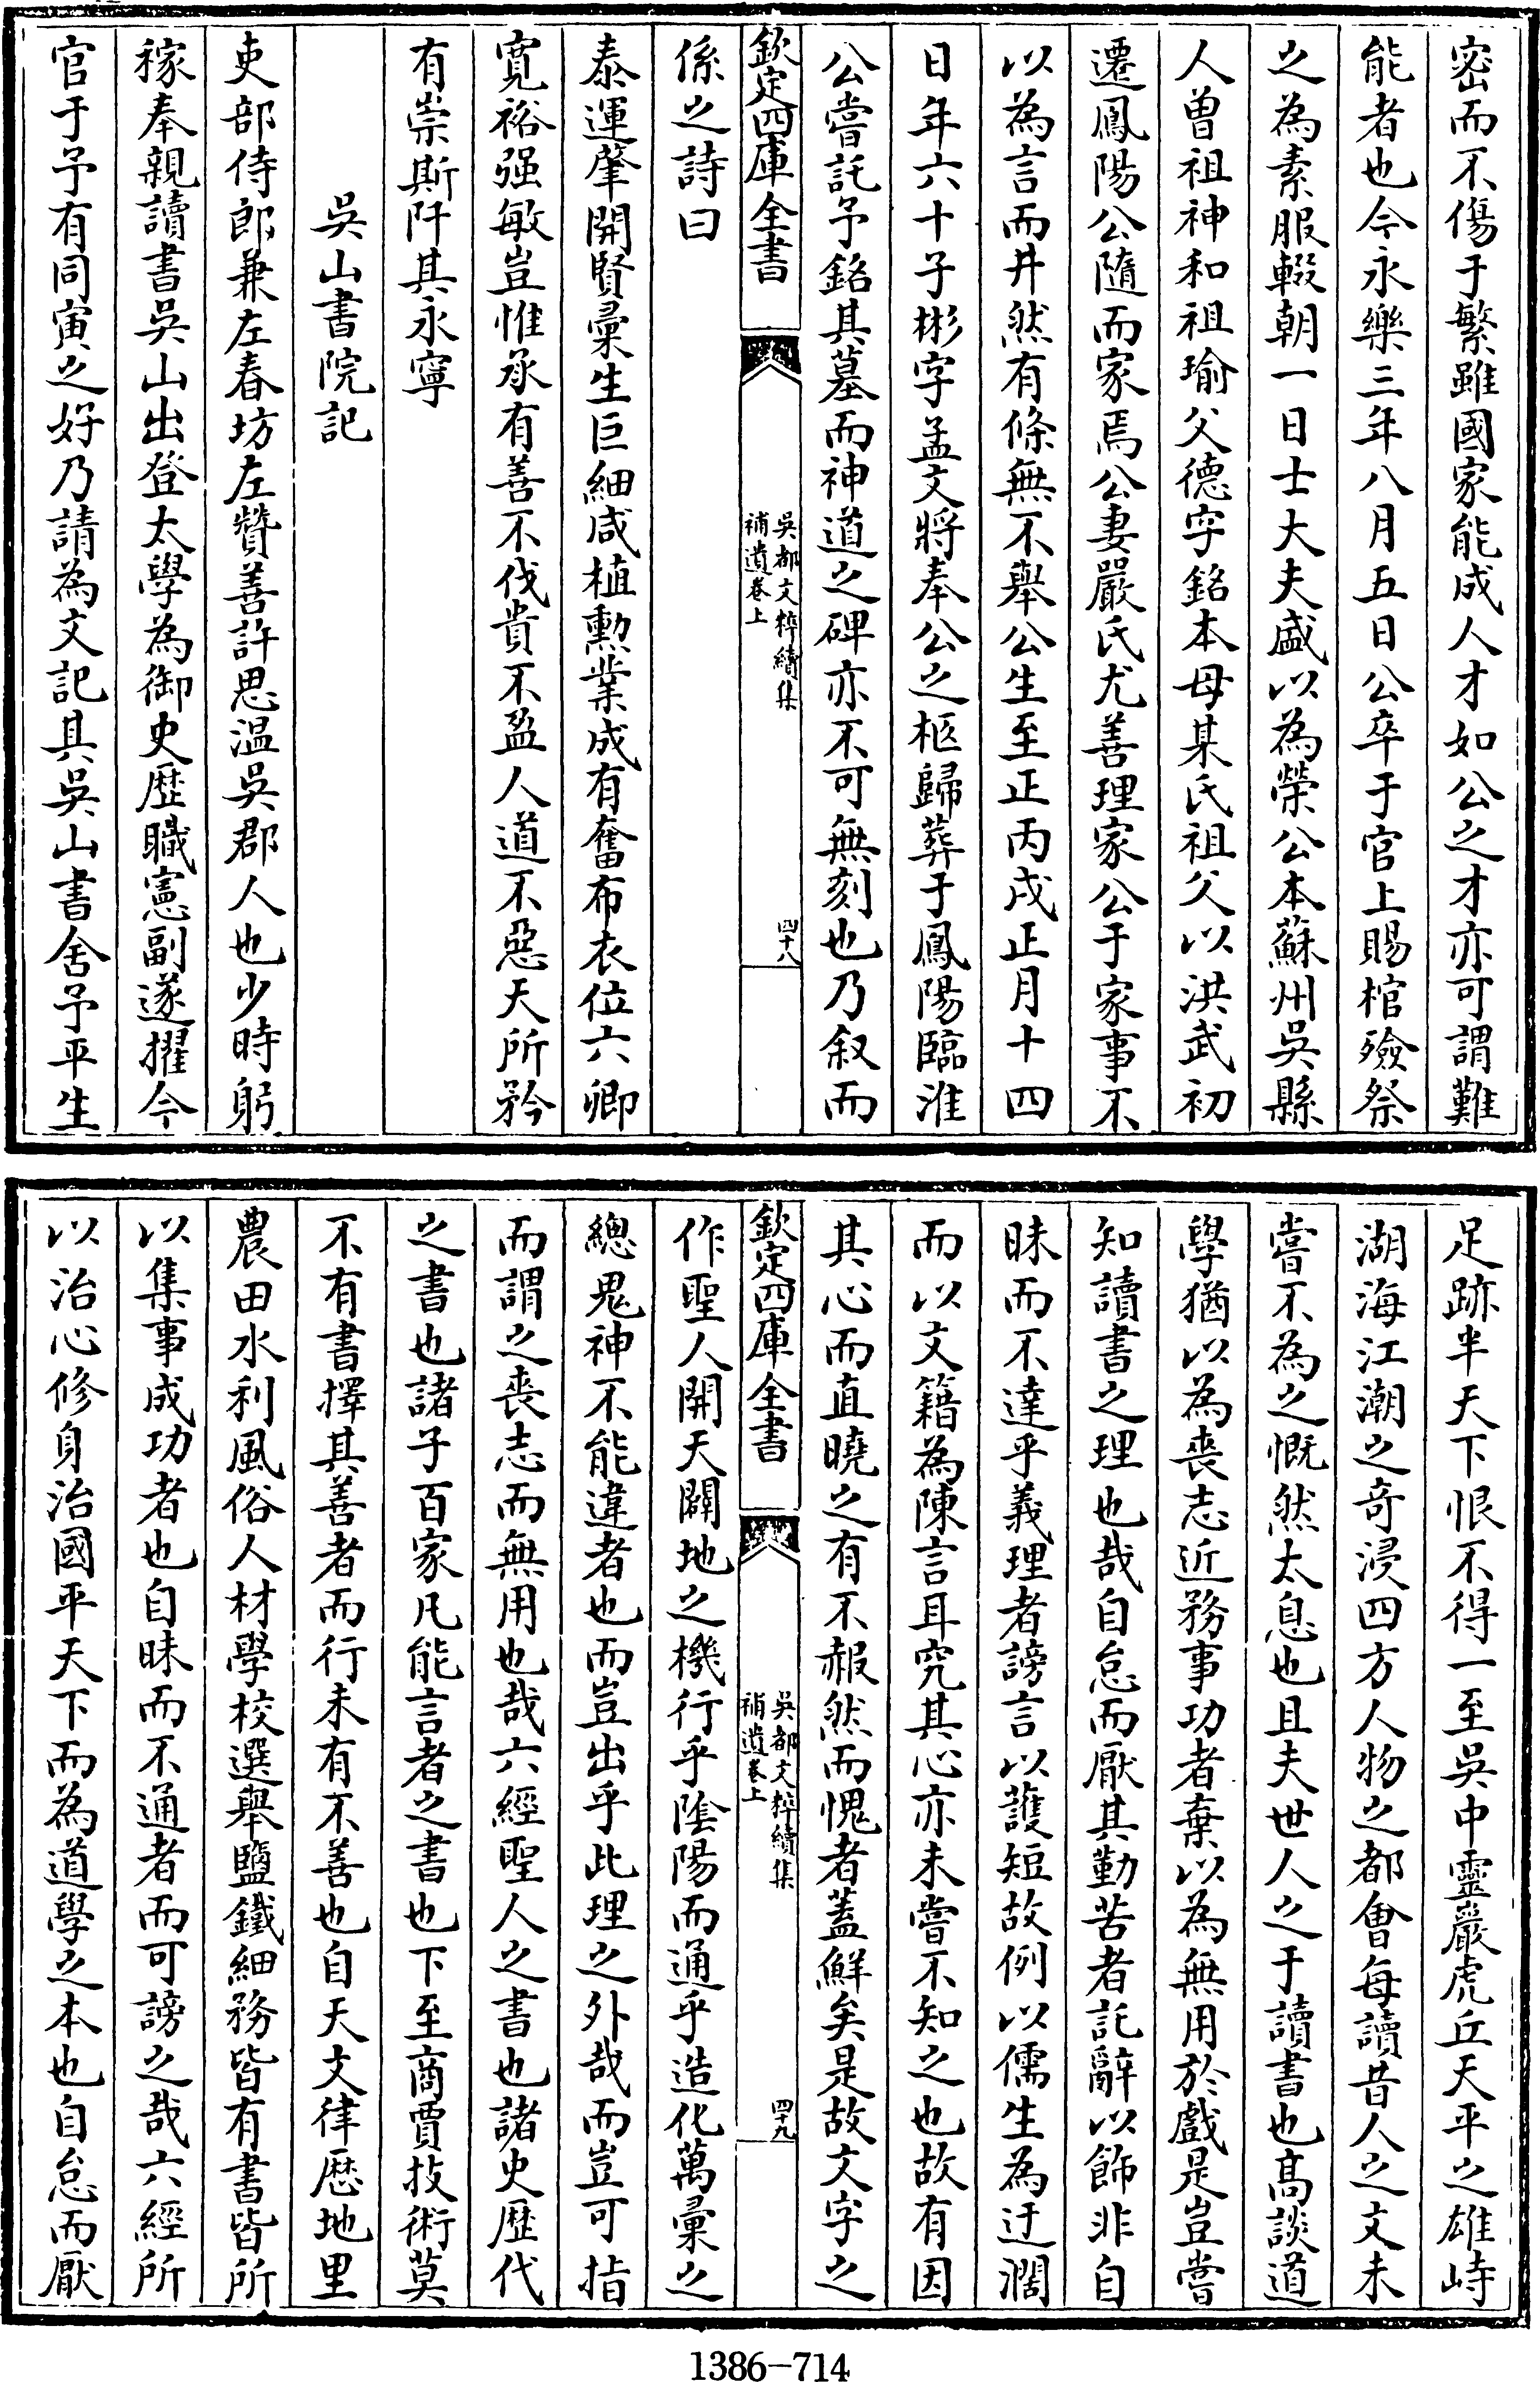 密而不傷于繁雖國家能成人才如公之才亦可謂難
能者也今永樂三年八月五日公卒于官上賜棺殮祭
之為素服輟朝一日士大夫盛以為榮公本蘇州吳縣
人曾祖神和祖瑜父德字銘本母某氏祖父以洪武初
遷鳳陽公隨而家焉公妻嚴氏尤善理家公于家事不
以為言而井然有條無不舉公生至正丙戌正月十四
日年六十子彬字孟文將奉公之柩歸葬于鳳陽臨淮
公嘗託予銘其墓而神道之碑亦不可無刻也乃叙而
欽定四庫全書
吳都文粹續集
補遺卷上
四十八
係之詩曰
泰運肇開賢彙生巨細咸植勲業成有奮布衣位六卿
寛裕强敏豈惟承有善不伐貴不盈人道不惡天所矜
有崇斯阡其永寧
吳山書院記
吏部侍郎兼左春坊左贊善許思溫吳郡人也少時躬
稼奉親讀書吳山出登太學為御史歴職憲副遂擢今
官于予有同寅之好乃請為文記其吳山書舍予平生
足跡半天下恨不得一至吳中靈巖虎丘天平之雄峙
湖海江潮之奇浸四方人物之都會每讀昔人之文未
嘗不為之慨然太息也且夫世人之于讀書也髙談道
學猶以為喪志近務事功者棄以為無用於戲是豈嘗
知讀書之理也哉自怠而厭其勤苦者託辭以飾非自
昧而不達乎義理者謗言以護短故例以儒生為迂濶
而以文籍為陳言耳究其心亦未嘗不知之也故有因
其心而直曉之有不赧然而愧者蓋鮮矣是故文字之
欽定四庫全書
吳都文粹續集
補遺卷上
四十九
作聖人開天闢地之機行乎陰陽而通乎造化萬彙之
總鬼神不能違者也而豈出乎此理之外哉而豈可指
而謂之喪志而無用也哉六經聖人之書也諸史歴代
之書也諸子百家凡能言者之書也下至商賈技術莫
不有書擇其善者而行未有不善也自天文律歴地里
農田水利風俗人材學校選舉鹽鐵細務皆有書皆所
以集事成功者也自昧而不通者而可謗之哉六經所
以治心修身治國平天下而為道學之本也自怠而厭
1386-714